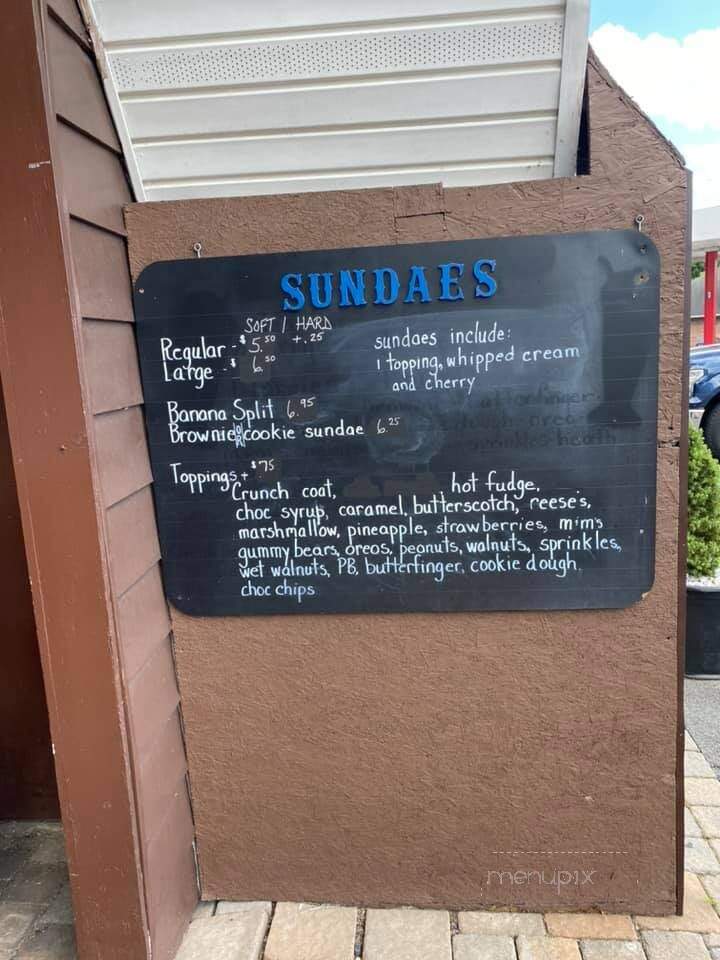 SUNDAES
SOFT / HARD
Regular - $5.50 +.25
Large - $6.50
sundaes include:
1 topping, whipped cream
and cherry
Banana Split 6.95
Brownie or cookie sundae 6.25
Toppings + $.75
Crunch coat, hot fudge,
choc syrup, caramel, butterscotch, reese's,
marshmallow, pineapple, strawberries, m:m's
gummy bears, oreos, peanuts, walnuts, sprinkles,
wet walnuts, PB, butterfinger, cookie dough.
choc chips
menupix